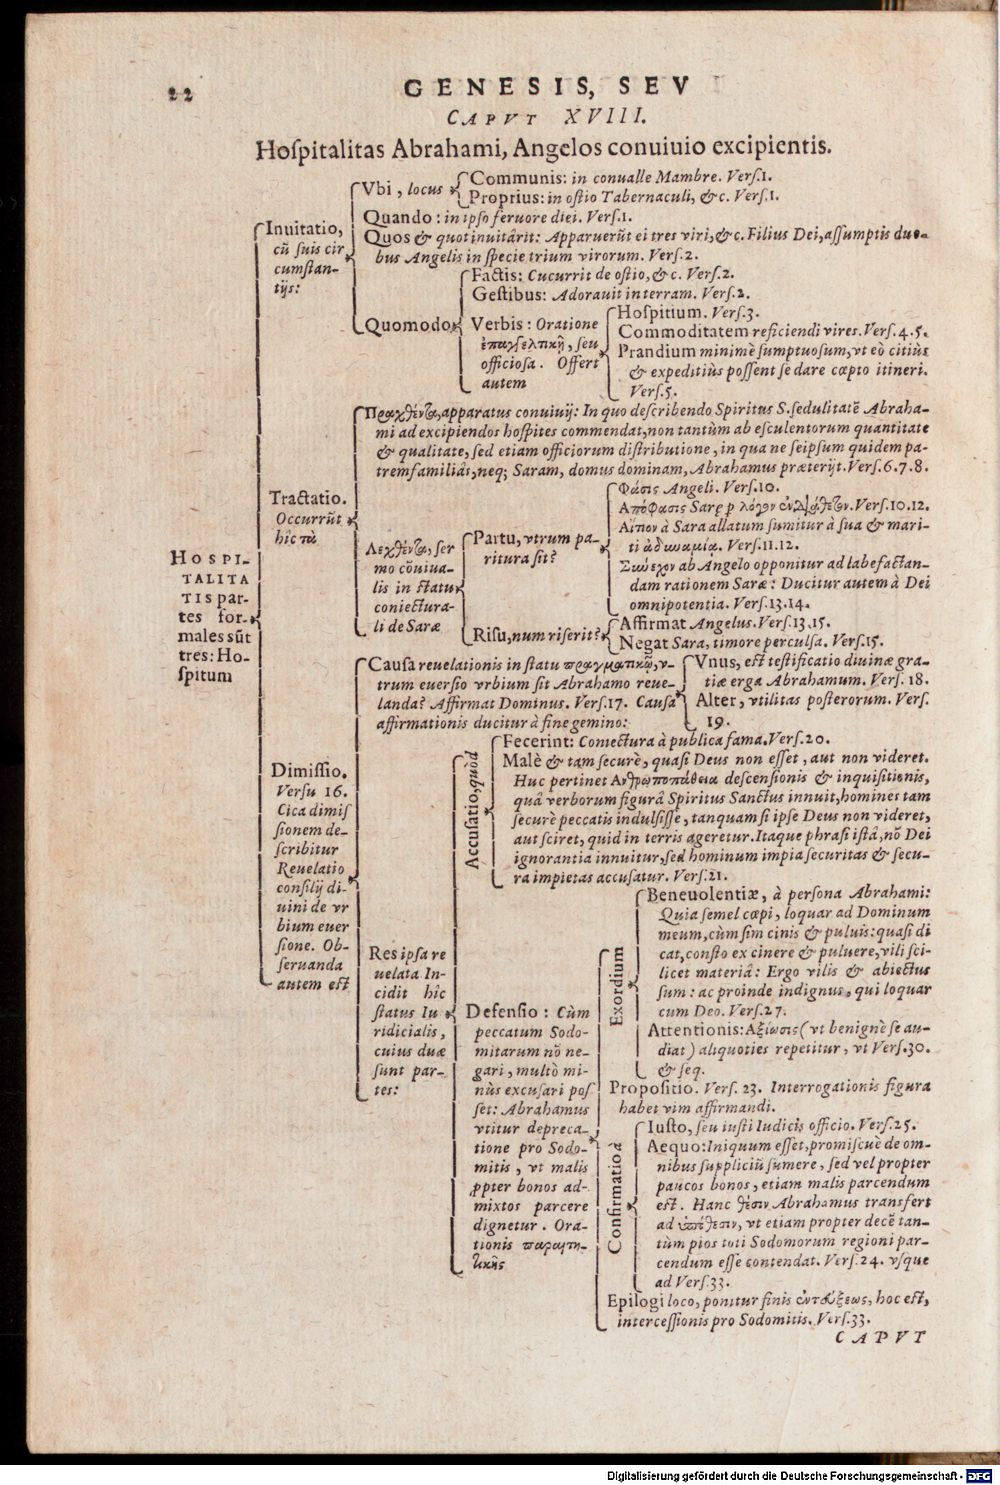 22
GENESIS, SEV
CAPVT XVIII.
Hoſpitalitas Abrahami, Angelos conuiuio excipientis.
HOSPI-
TALITA
TIS par-
tes for-
males sūt
tres: Ho-
ſpitum
Inuitatio,
cū ſuis cir
cumſtan-
tijs:
Vbi, locus
Communis: in conualle Mambre. Verſ.1.
Proprius: in oſtio Tabernaculi, &c. Verſ.1.
Quando: in ipſo feruore diei. Verſ.1.
Quos & quot inuitârit: Apparuerūt ei tres viri, &c. Filius Dei, aſſumptis duo-
bus Angelis in ſpecie trium virorum. Verſ.2.
Quomodo
Factis: Cucurrit de oſtio, &c. Verſ.2.
Geſtibus: Adorauit in terram. Verſ.2.
Verbis: Oratione
ἐπαγγελτικῇ, ſeu
officioſa. Offert
autem
Hoſpitium. Verſ.3.
Commoditatem reficiendi vires. Verſ.4.5.
Prandium minimè ſumptuoſum, vt eò citiùs
& expeditiùs poſſent ſe dare cœpto itineri.
Verſ.5.
Tractatio.
Occurrūt
hîc τὰ
Πραχθέντα, apparatus conuiuij: In quo deſcribendo Spiritus S. ſedulitatē Abraha-
mi ad excipiendos hoſpites commendat, non tantùm ab eſculentorum quantitate
& qualitate, ſed etiam officiorum diſtributione, in qua ne ſeipſum quidem pa-
tremfamiliâs, neq; Saram, domus dominam, Abrahamus præterijt. Verſ.6.7.8.
Λεχθέντα, ſer
mo cōuiua-
lis in ſtatu
coniectura-
li de Saræ
Partu, vtrum pa-
ritura ſit?
Φάσις Angeli. Verſ.10.
Ἀπόφασις Saræ Verſ.10.12.
Αἴτιον à Sara allatum ſumitur à ſua & mari-
ti ἀδυναμίᾳ. Verſ.11.12.
Συνέχον ab Angelo opponitur ad labefactan-
dam rationem Saræ: Ducitur autem à Dei
omnipotentia. Verſ.13.14.
Riſu, num riſerit?
Affirmat Angelus. Verſ.13.15.
Negat Sara, timore perculſa. Verſ.15.
Dimiſſio.
Verſu 16.
Cica dimiſ
ſionem de-
ſcribitur
Reuelatio
conſilij di-
uini de vr
bium euer
ſione. Ob-
ſeruanda
autem eſt
Cauſa reuelationis in ſtatu πραγματικῷ, v-
trum euerſio vrbium ſit Abrahamo reue-
landa? Affirmat Dominus. Verſ.17. Cauſa
affirmationis ducitur à fine gemino:
Vnus, eſt teſtificatio diuinæ gra-
tiæ erga Abrahamum. Verſ. 18.
Alter, vtilitas poſterorum. Verſ.
19.
Res ipſa re
uelata In-
cidit hîc
ſtatus Iu
ridicialis,
cuius duæ
ſunt par-
tes:
Accuſatio, quòd
Fecerint: Coniectura à publica fama. Verſ.20.
Malè & tam ſecurè, quaſi Deus non eſſet, aut non videret.
Huc pertinet Ἀνθρωποπάθεια deſcenſionis & inquiſitionis,
quâ verborum figurâ Spiritus Sanctus innuit, homines tam
ſecurè peccatis indulſiſſe, tanquam ſi ipſe Deus non videret,
aut ſciret, quid in terris ageretur. Itaque phraſi iſtâ, nō Dei
ignorantia innuitur, ſed hominum impia ſecuritas & ſecu-
ra impietas accuſatur. Verſ.21.
Defenſio: Cùm
peccatum Sodo-
mitarum nō ne-
gari, multò mi-
nùs excuſari poſ
ſet: Abrahamus
vtitur depreca-
tione pro Sodo-
mitis, vt malis
ꝓpter bonos ad-
mixtos parcere
dignetur. Ora-
tionis παραιτη-
τικῆς
Exordium
Beneuolentiæ, à perſona Abrahami:
Quia ſemel cœpi, loquar ad Dominum
meum, cùm ſim cinis & puluis: quaſi di
cat, conſto ex cinere & puluere, vili ſci-
licet materiâ: Ergo vilis & abiectus
ſum: ac proinde indignus, qui loquar
cum Deo. Verſ.27.
Attentionis: Ἀξίωσις (vt benignè ſe au-
diat) aliquoties repetitur, vt Verſ.30.
& ſeq.
Propoſitio. Verſ. 23. Interrogationis figura
habet vim affirmandi.
Confirmatio à
Iuſto, ſeu iuſti Iudicis officio. Verſ.25.
Aequo: Iniquum eſſet, promiſcuè de om-
nibus ſuppliciū ſumere, ſed vel propter
paucos bonos, etiam malis parcendum
eſt. Hanc θέσιν Abrahamus transfert
ad ὑπόθεσιν, vt etiam propter decē tan-
tùm pios toti Sodomorum regioni par-
cendum eſſe contendat. Verſ.24. vſque
ad Verſ.33.
Epilogi loco, ponitur finis ἐντεύξεως, hoc eſt,
interceſſionis pro Sodomitis. Verſ.33.
CAPVT
Digitalisierung gefördert durch die Deutsche Forschungsgemeinschaft - DFG